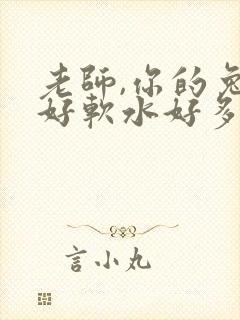 老師,你的兔
好軟水好多
言小丸